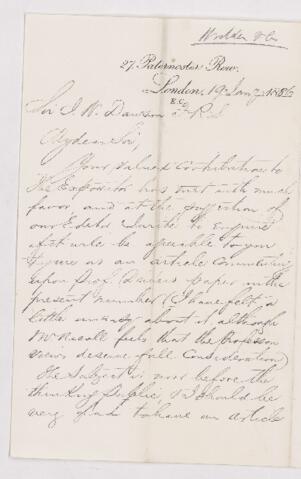 27, Paternoster Row,
London, 19 Jany 1886
E.C.
Sir J. W. Dawson F.R.S
My dear Sir,
Your valued contribution to
The Expositor has met with much
favor and at the suggestion of
our Editor I write to enquire
if it will be agreeable to you to
figure us an article commenting
upon Prof. paper in the
present number (I have felt a
little uneasy about it although
Mr Nicoll feels that the Professor
views deserve full consideration)
The Subject is now before the
thinking public, & I should be
very glad to have an article